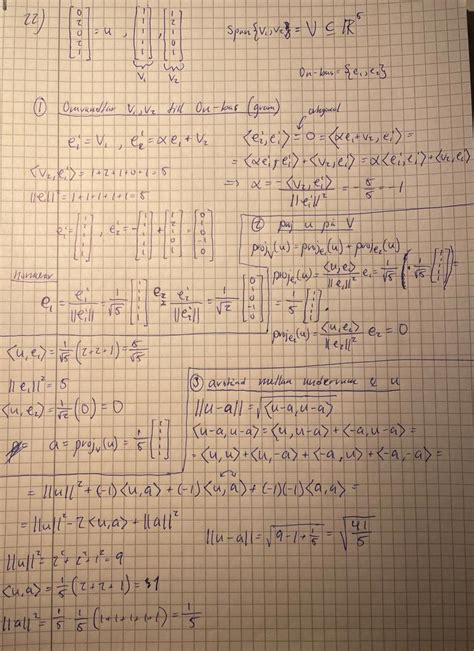 22) [0 2 0 2 1] = u , [1 1 1 1 1] , [1 2 1 0 1] Span{v₁, v₂} = V ⊆ ℝ⁵
v₁ v₂ On-bas = {e₁, e₂}
① Omvandlar v₁, v₂ till On-bas (gram)
e₁' = v₁ , e₂' = αe₁ + v₂
ortogonal
⟨e₂', e₁'⟩ = 0 = ⟨αe₁ + v₂, e₁'⟩ =
= ⟨αe₁', e₁'⟩ + ⟨v₂, e₁'⟩ = α⟨e₁', e₁'⟩ + ⟨v₂, e₁⟩
⟨v₂, e₁'⟩ = 1+2+1+0+1 = 5
||e₁'||² = 1+1+1+1+1 = 5
⇒ α = -⟨v₂, e₁'⟩ / ||e₁'||² = -5/5 = -1
e₁' = [1 1 1 1 1] , e₂' = -[1 1 1 1 1] + [1 2 1 0 1] = [0 1 0 -1 0]
② proj u på V
proj_V(u) = proj_e₁(u) + proj_e₂(u)
Normerar
e₁ = e₁'/||e₁'|| = 1/√5 [1 1 1 1 1] e₂ = e₂'/||e₂'|| = 1/√2 [0 1 0 -1 0]
proj_e₁(u) = ⟨u, e₁⟩/||e₁||² e₁ = 1/√5 ( · 1/√5 [1 1 1 1 1] ) =
= 1/5 [1 1 1 1 1] .
proj_e₂(u) = ⟨u, e₂⟩/||e₂||² e₂ = 0
⟨u, e₁⟩ = 1/√5 (2+2+1) = 5/√5
||e₁||² = 5
⟨u, e₂⟩ = 1/√2 (0) = 0
a = proj_V(u) = 1/5 [1 1 1 1 1]
③ avstånd mellan underrum & u
||u-a|| = √⟨u-a, u-a⟩
⟨u-a, u-a⟩ = ⟨u, u-a⟩ + ⟨-a, u-a⟩ =
= ⟨u, u⟩ + ⟨u, -a⟩ + ⟨-a, u⟩ + ⟨-a, -a⟩ =
= ||u||² + (-1)⟨u, a⟩ + (-1)⟨u, a⟩ + (-1)(-1)⟨a, a⟩ =
= ||u||² - 2⟨u, a⟩ + ||a||²
||u-a|| = √(9-1+1/5) = √(41/5)
||u||² = 2² + 2² + 1² = 9
⟨u, a⟩ = 1/5 (2+2+1) = 1
||a||² = 1/5 · 1/5 (1+1+1+1+1) = 1/5